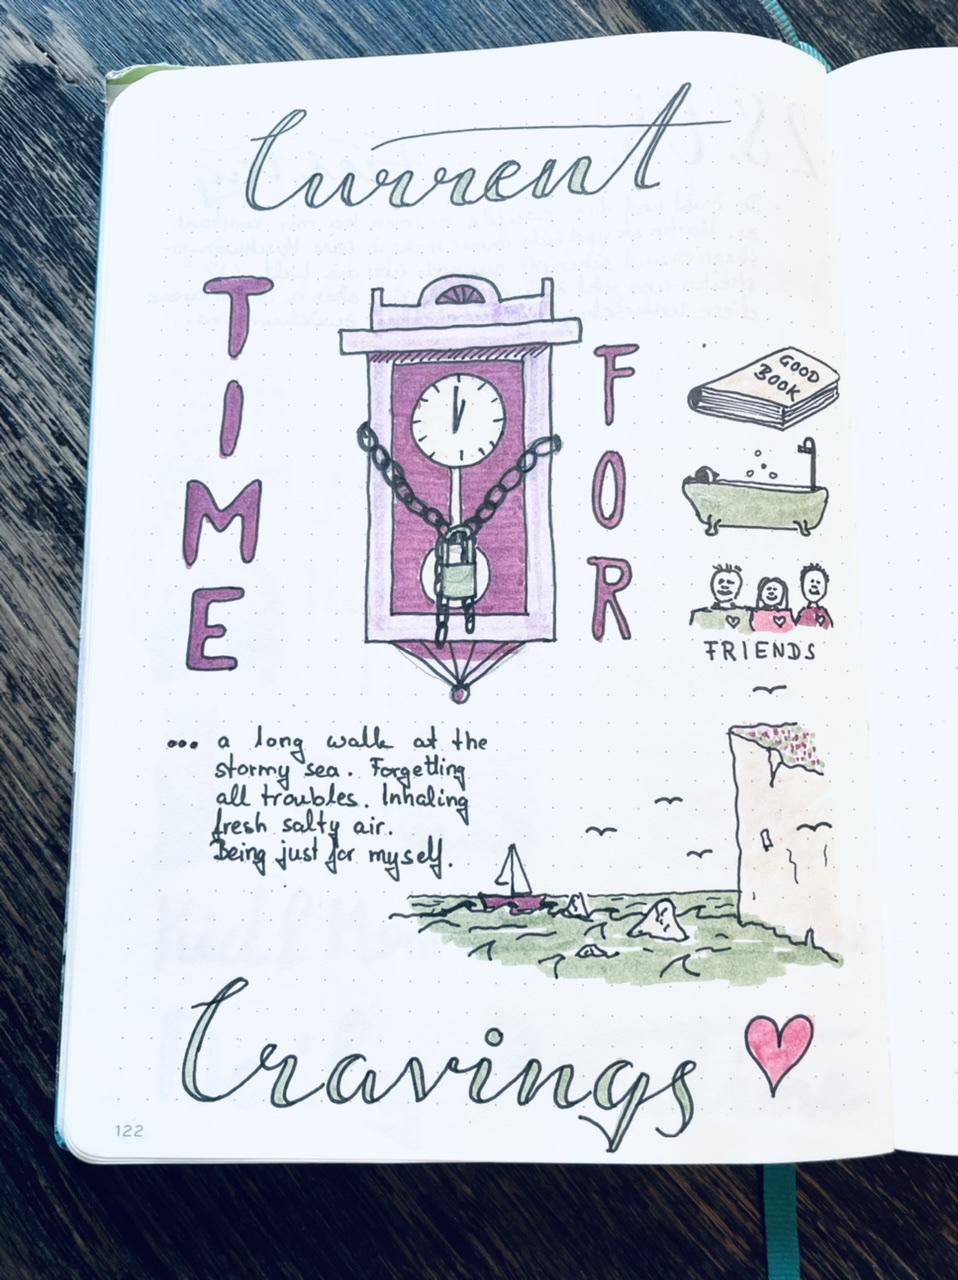 Current
TIME
FOR
GOOD
BOOK
FRIENDS
... a long walk at the
stormy sea. Forgetting
all troubles. Inhaling
fresh salty air.
Being just for myself.
Cravings
122